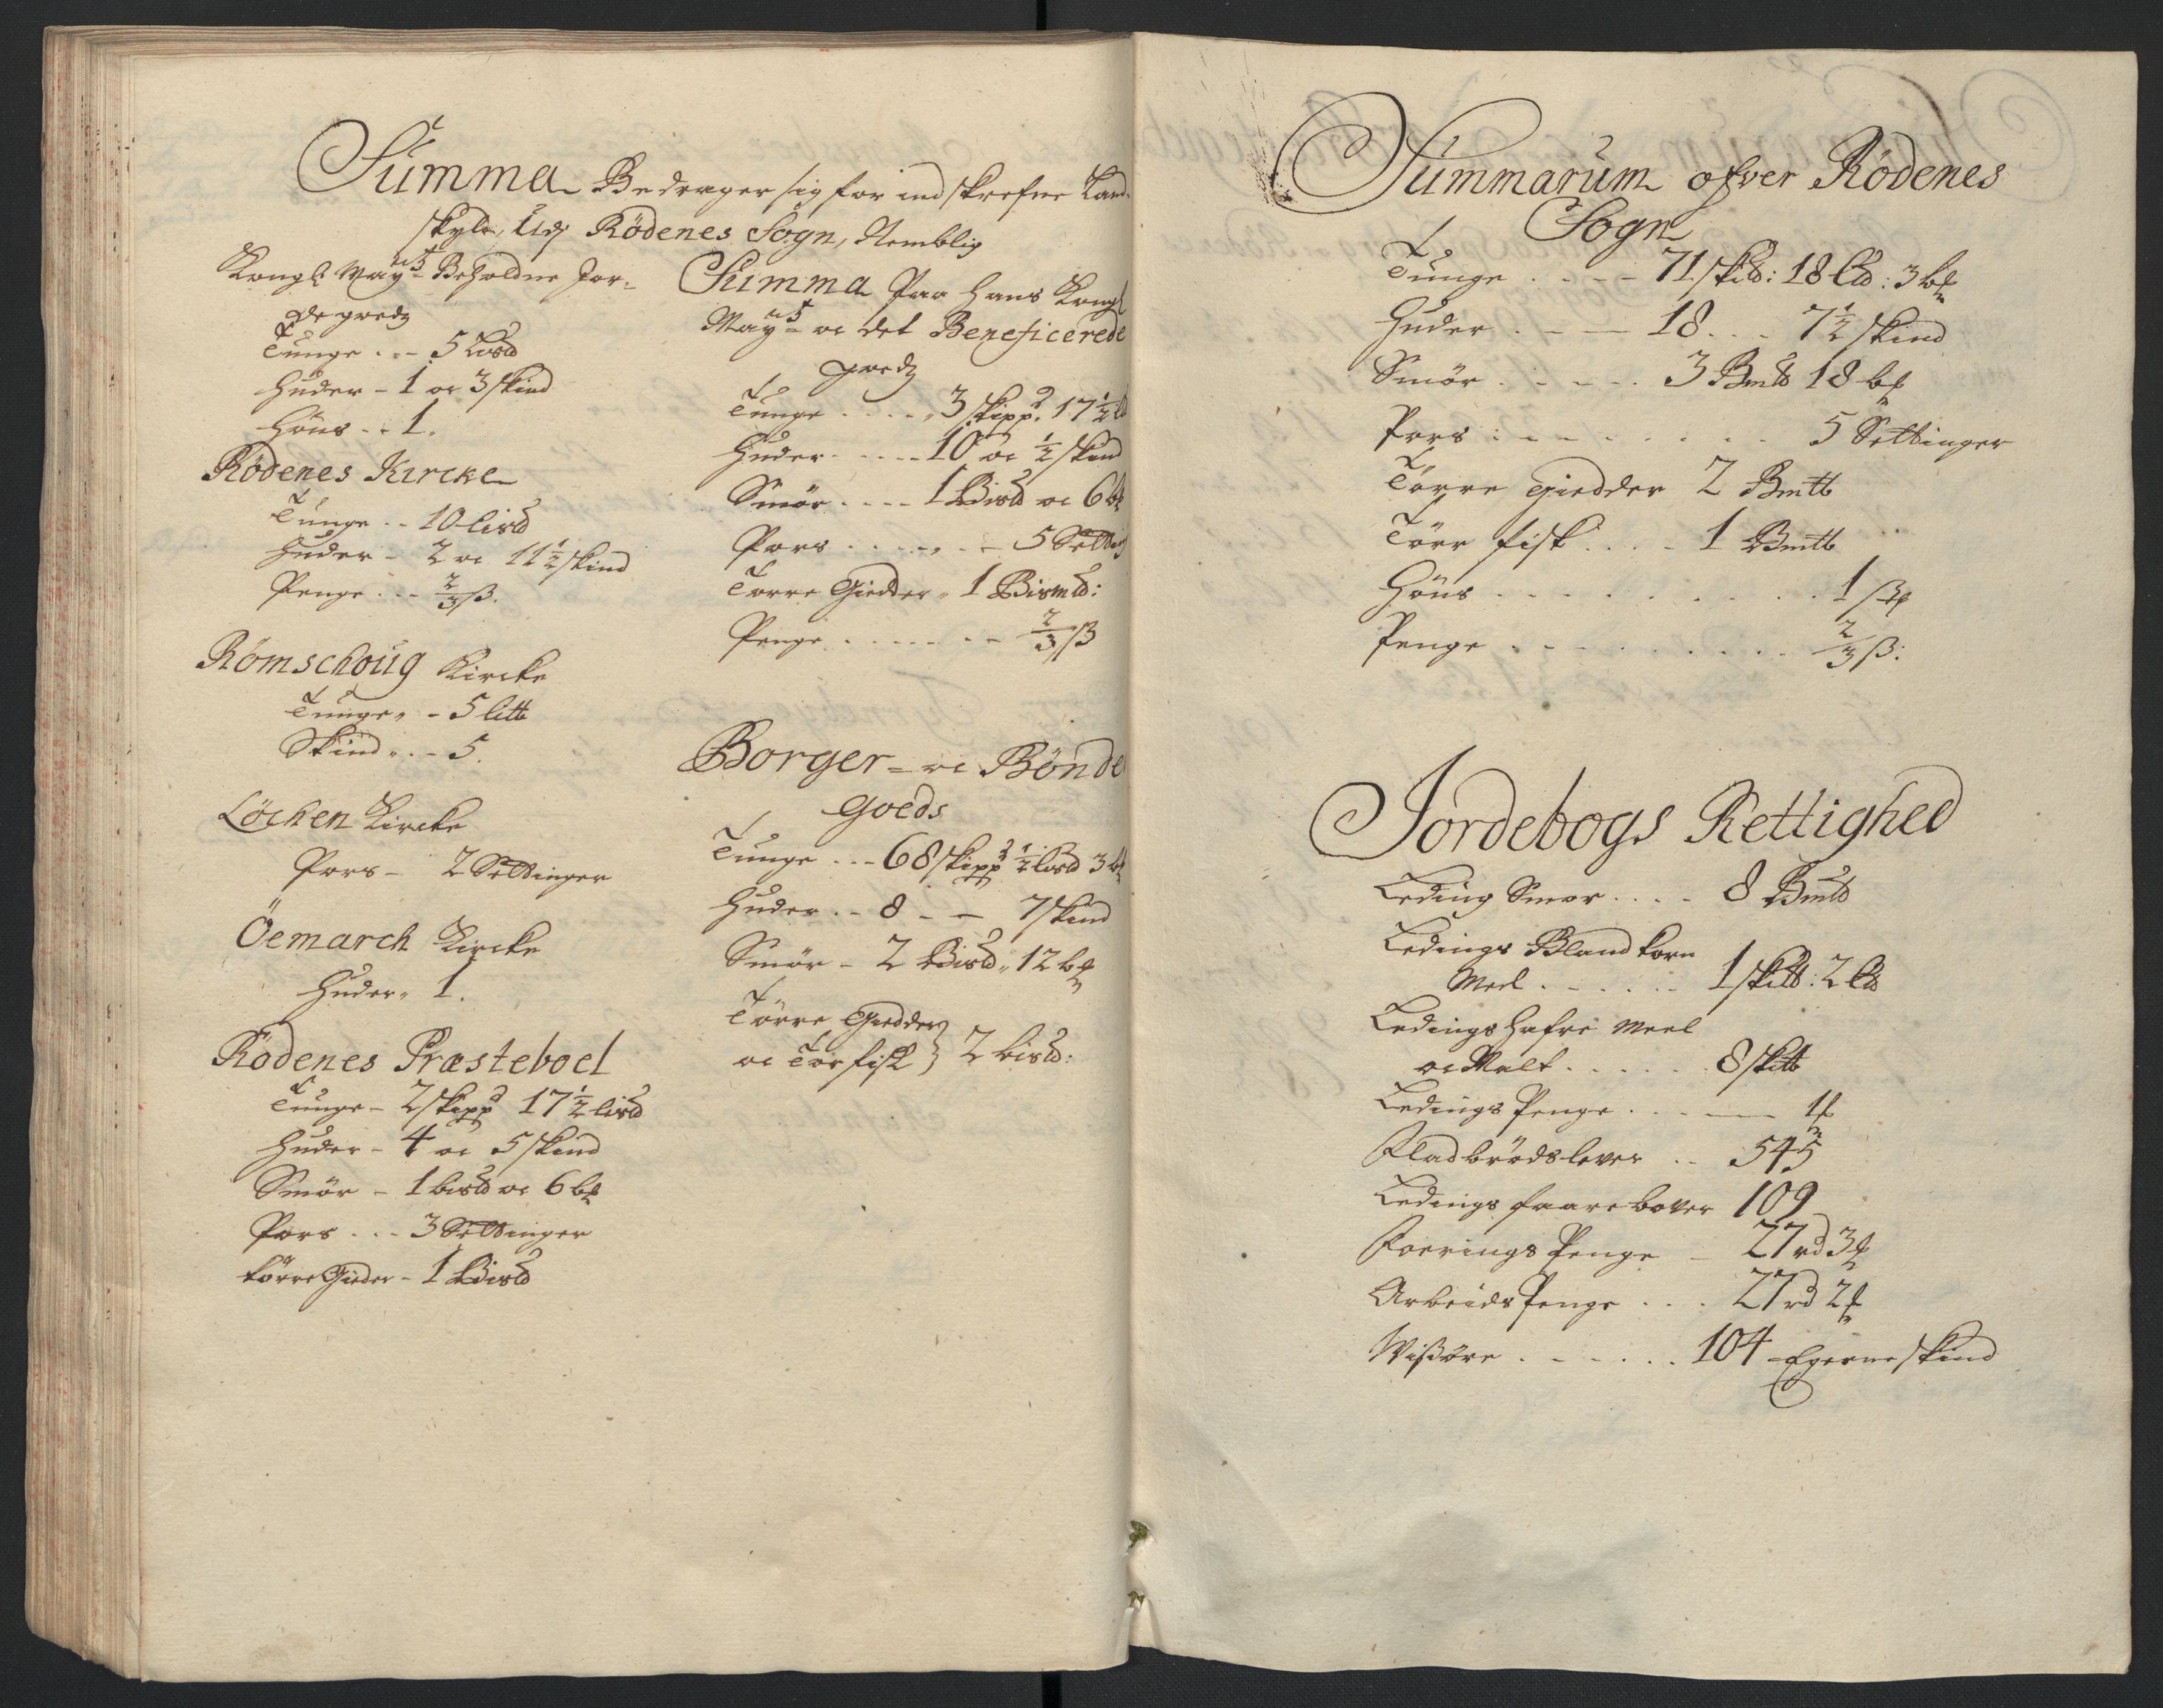 Summa Bedrager sig for indskrefne Land-
skyld, Udj Rödenes Sogn, Nemblig
Kongl May:ts Beholdne Jor-
degodz
Tunge . . - 5 Lisd
Huder - 1 oc 3 skind
Höns - - 1.
Rödenes Kircke
Tunge . . 10 lisd
Huder - 2 oc 11 1/2 skind
Penge . . - 2/3 ß.
Römschoug Kircke
Tunge - - 5 litt
Skind . . - 5.
Löcken Kircke
Pors - 2 Settinger
Öemarch Kircke
Huder - 1.
Rödenes Præsteboel
Tunge - 2 skippd 17 1/2 lisd
Huder - 4 oc 5 skind
Smör - 1 bisd oc 6 bf
Pors . . . 3 Settinger
törre Gieder - 1 Bisd
Summa Paa Hans Kongl
May:ts oc det Beneficerede
godz
Tunge . . . . . 3 skippd. 17 1/2
Huder . . . . . 10 oc 1/2 skind
Smör . . . . 1 Bisd oc 6 bf
Pors . . . . . . - 5 Setting
Torre Giedder - 1 Bismd:
Penge . . . . . . - 2/3 ß
Borger - oc Bönde
Goeds
Tunge . . . 68 skippd 1/2 lisd 3 bf
Huder . . 8 - - 7 skind
Smör - 2 Bisd - 12 bf
Törre Giedder
oc Tör fisk } 2 bisd:
Summarum ofver Rödenes
Sogn
Tunge . . - - 71 skd: 18 ld: 3 bf
Huder . - - 18 . . - 7 1/2 skind
Smör . . . . . 3 Bmd 18 bf
Pors : . . . . . . . 5 Settinger
Törre Giedder 2 Bmtt
Törr fisk . . . - 1 Bmtt
Höns . . . . . . . . . 1
Penge . . . . . . . . . 2/3 ß:
Jordebogs Rettighed
Leding Smör . . . - 8 Bmd
Ledings Blandkorn
Meel . . . . . . 1 skd: 2 ld
Ledings Hafre Meel
oc Malt . . . . . . 8 skitt
Ledings Penge . . . - - 1
Fladbrödslever . . 545
Ledings faarebover 109
Foerings Penge - 27 rd 3
Arbeids Penge . . . 27 rd 2
Wißöre . . . . . . 104 Egerne skind